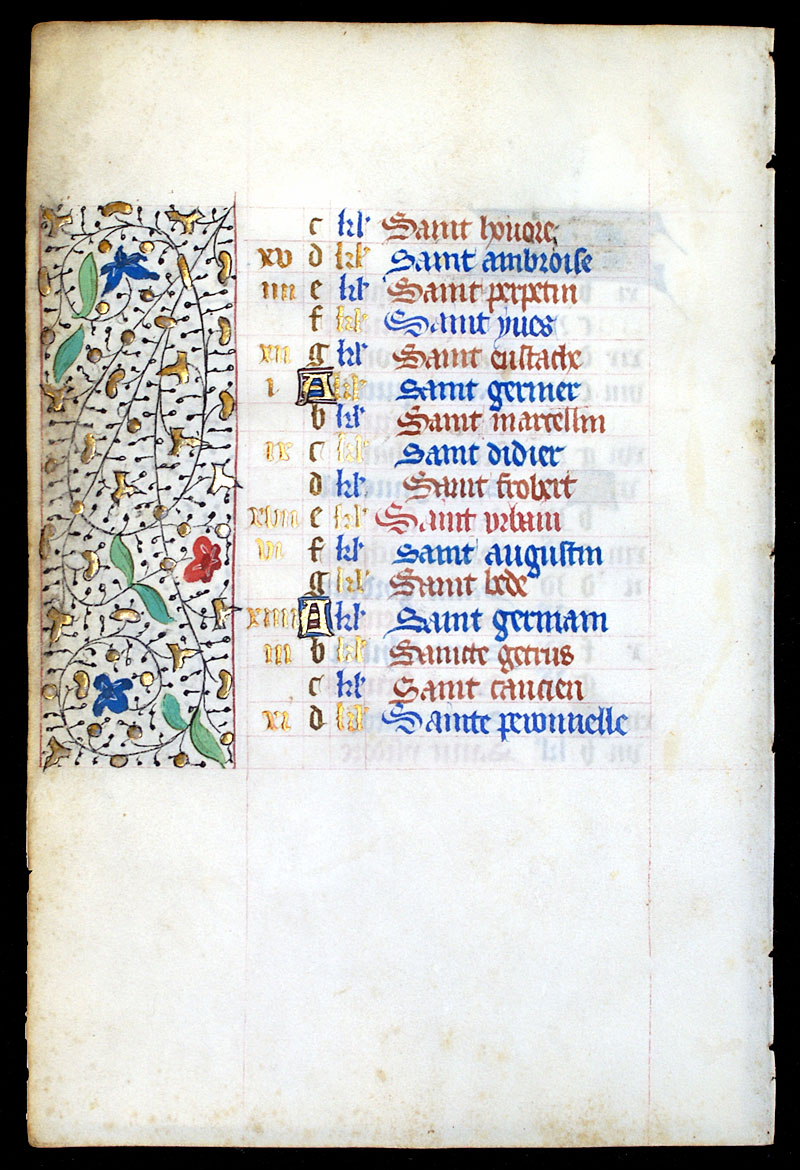 c kl' Saint honore
xv d kl' Saint ambroise
iiii e kl' Saint perpetin
f kl' Saint yues
xii g kl' Saint eustache
i A kl' Saint germer
b kl' Saint marcellin
ix c kl' Saint didier
d kl' Saint frobert
xvii e kl' Saint vrbain
vi f kl' Saint augustin
g kl' Saint bede
xiiii A kl' Saint germain
iii b kl' Saincte
c kl' Saint cancien
xi d kl' Sainte peronnelle